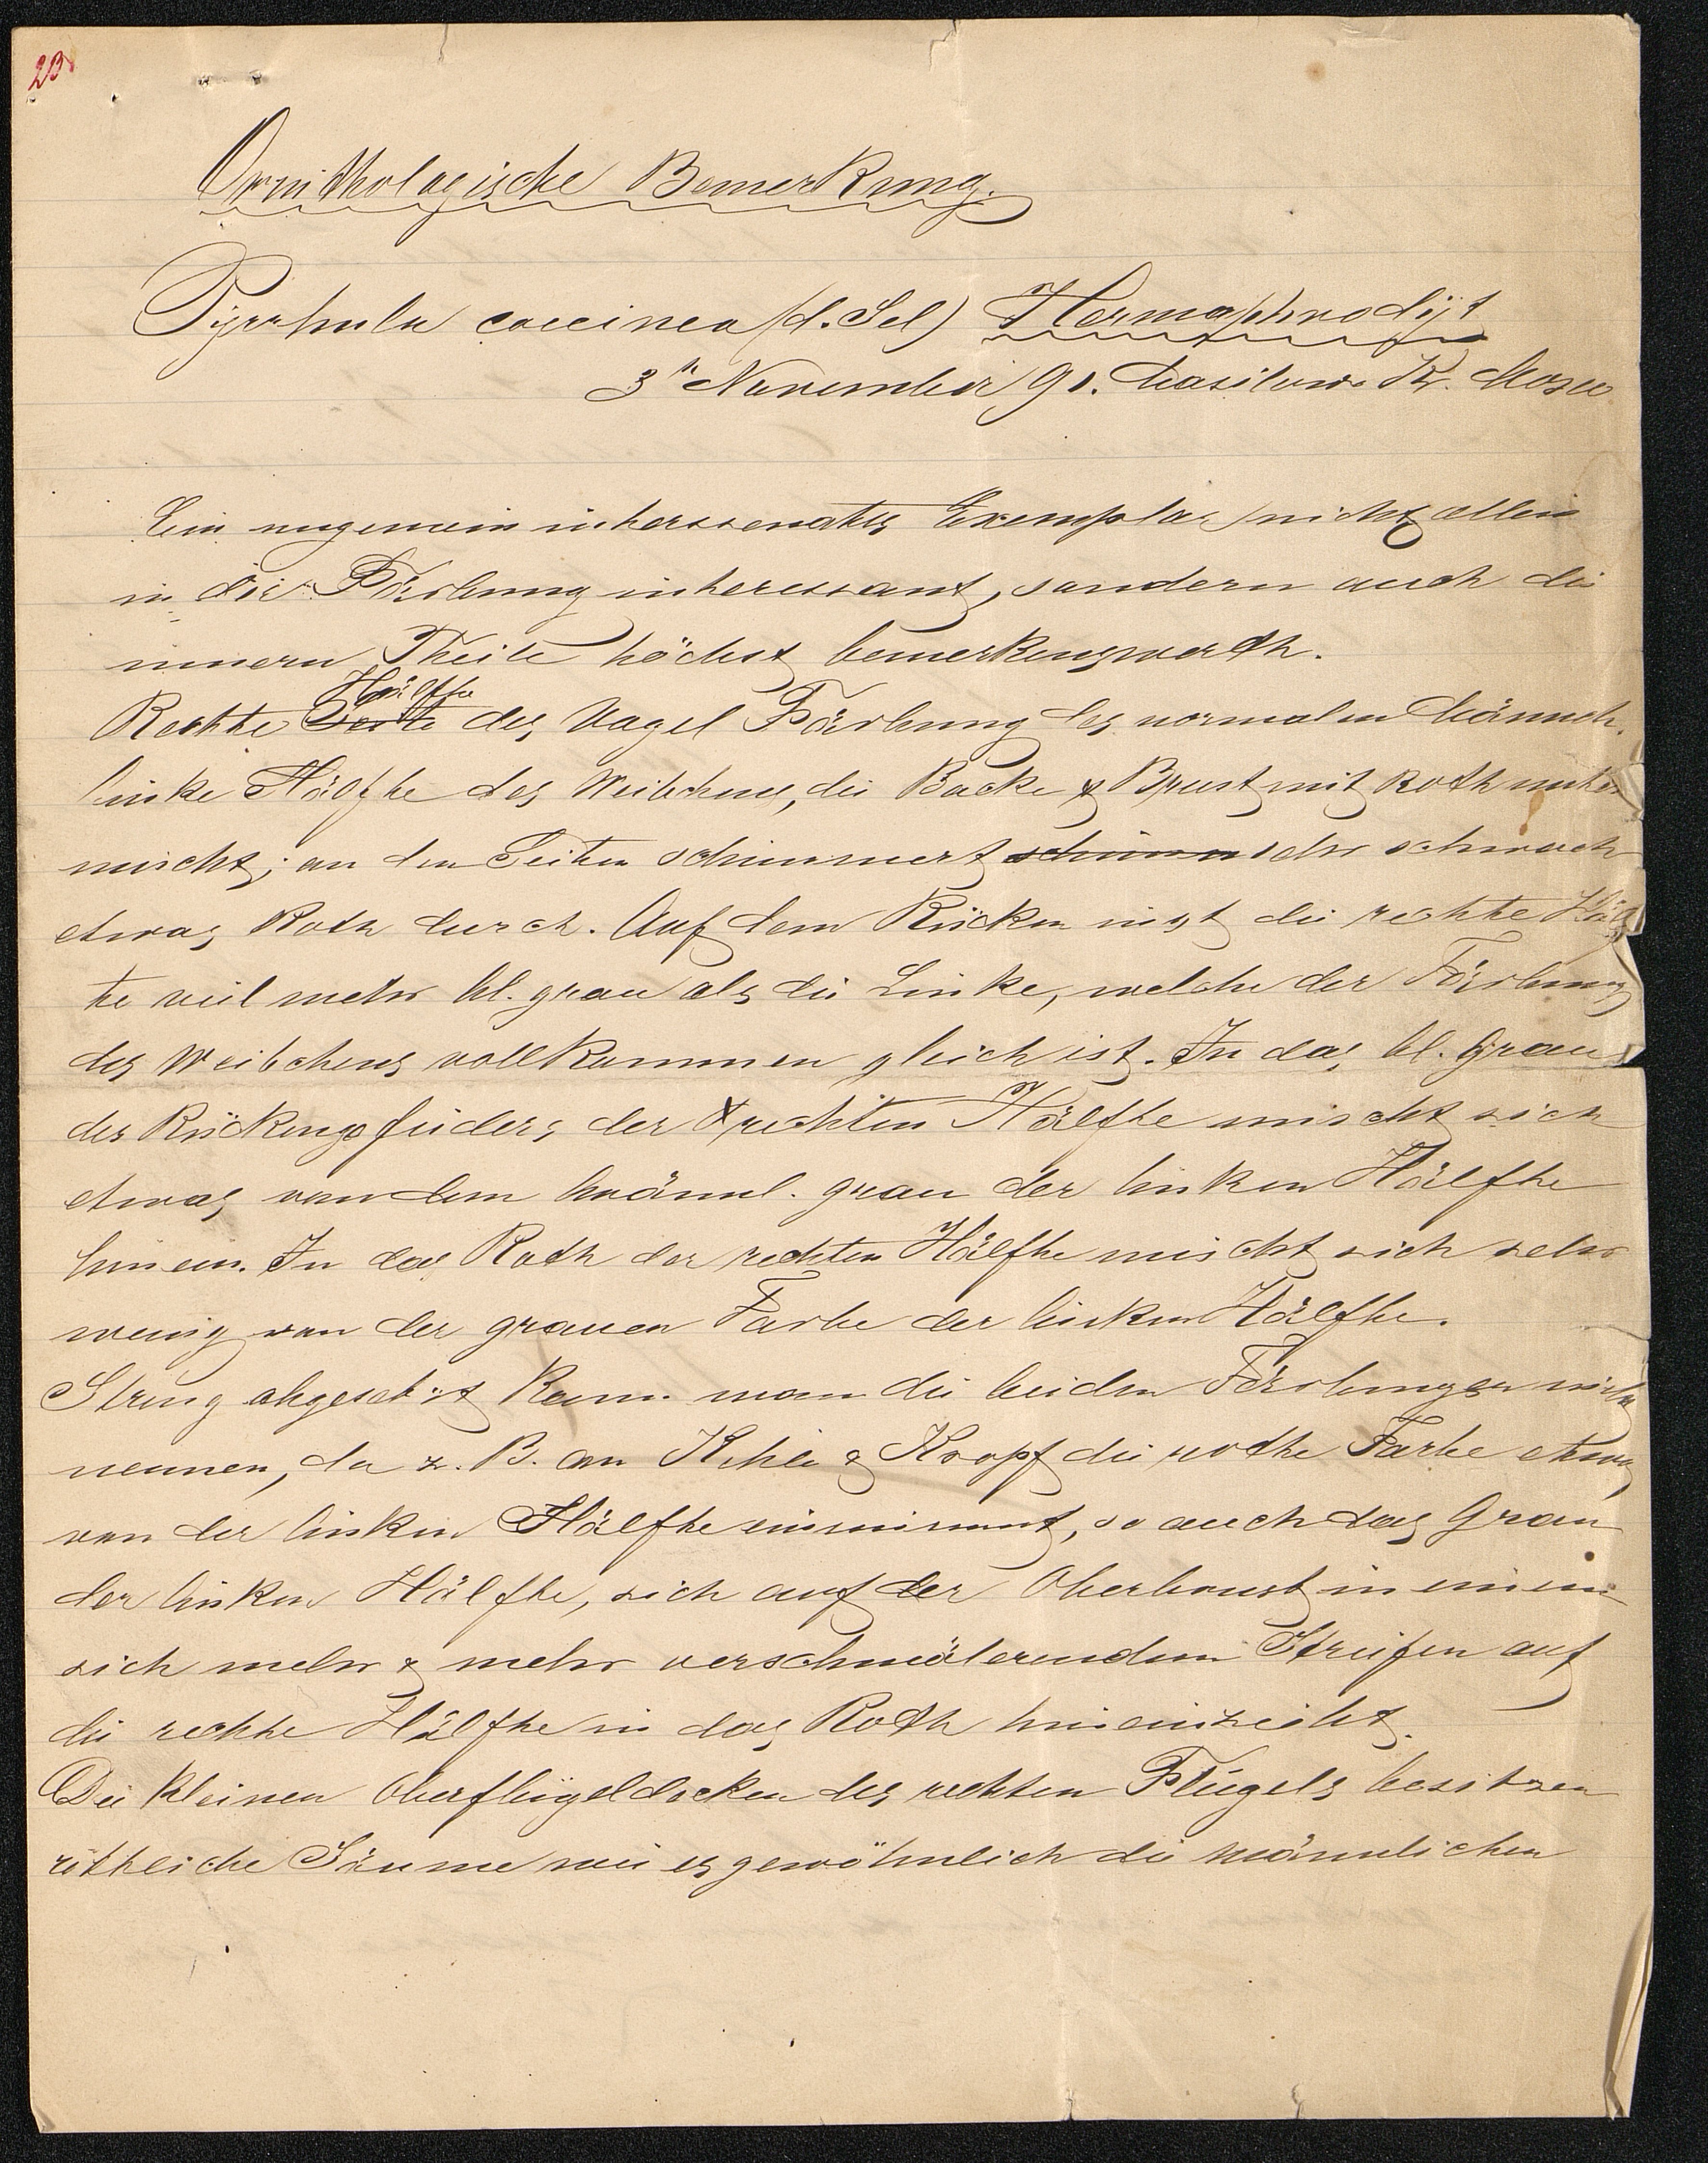 23
Ornithologische Bemerkung.
Pyrrhula coccinea (d. Sel) Hermaphrodijt
3ten November 91. Wasilowo Kr. Mosc
Ein ungemein interssenates Exemplar, nicht allein
in der Färbung interessant, sondern auch die
innern Theile höchst bemerkungswerth.
Hälfte
Rechte Seite des Vogel Färbung des normalen Männch.
linke Hälfte des Weibchens, die Backe & Brust mit Roth unter
mischt; an den Seiten schimmert schimm sehr schwach
etwas Roth durch. Auf dem Rücken ist die rechte Hälf
te viel mehr bl. grau als die Linke, welche der Färbung
des Weibchens vollkommen gleich ist. In das bl. Grau
des Rückengefieders der rechten Hälfte mischt sich
etwas von dem bräunl. grau der linken Hälfte
hinein. In das Roth der rechten Hälfte mischt sich sehr
wenig von der grauen Farbe der linken Hälfte.
Streng abgesetzt kann man die beiden Färbungen nicht
nennen, da z. B. an Kehle & Kropf die rothe Farbe etwas
von der linken Hälfte einnimmt, so auch das Grau
der linken Hälfte, sich auf der Oberbrust in einem
sich mehr & mehr verschmälerenden Streifen auf
die rechte Hälfte in das Roth hineinzieht.
Die kleinen Oberflügeldecken des rechten Flügels besitzen
röthliche Säume wie es gewöhnlich die männlichen